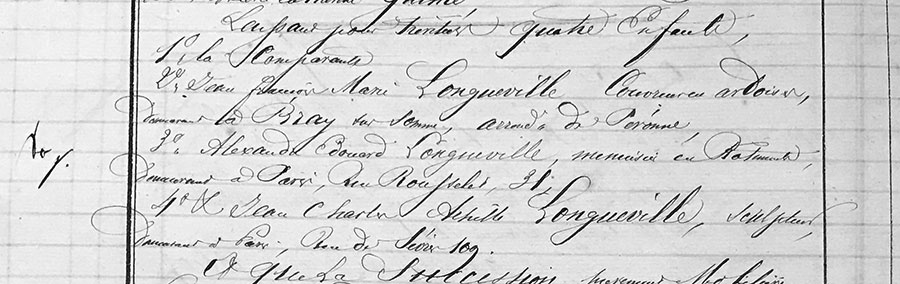 Laissant pour héritiers quatre Enfants,
1° la Comparante
2° Jean François Marie Longueville Couvreur en ardoises,
demeurant à Bray sur Somme, arrondt de Péronne,
3° Alexandre Edouard Longueville, menuisier en Bâtiments,
demeurant à Paris, rue Rousselet, 31,
4° & Jean Charles Achille Longueville, sculpteur,
demeurant à Paris, Rue de Sèvres 109.
Et que la Succession purement Mobilière